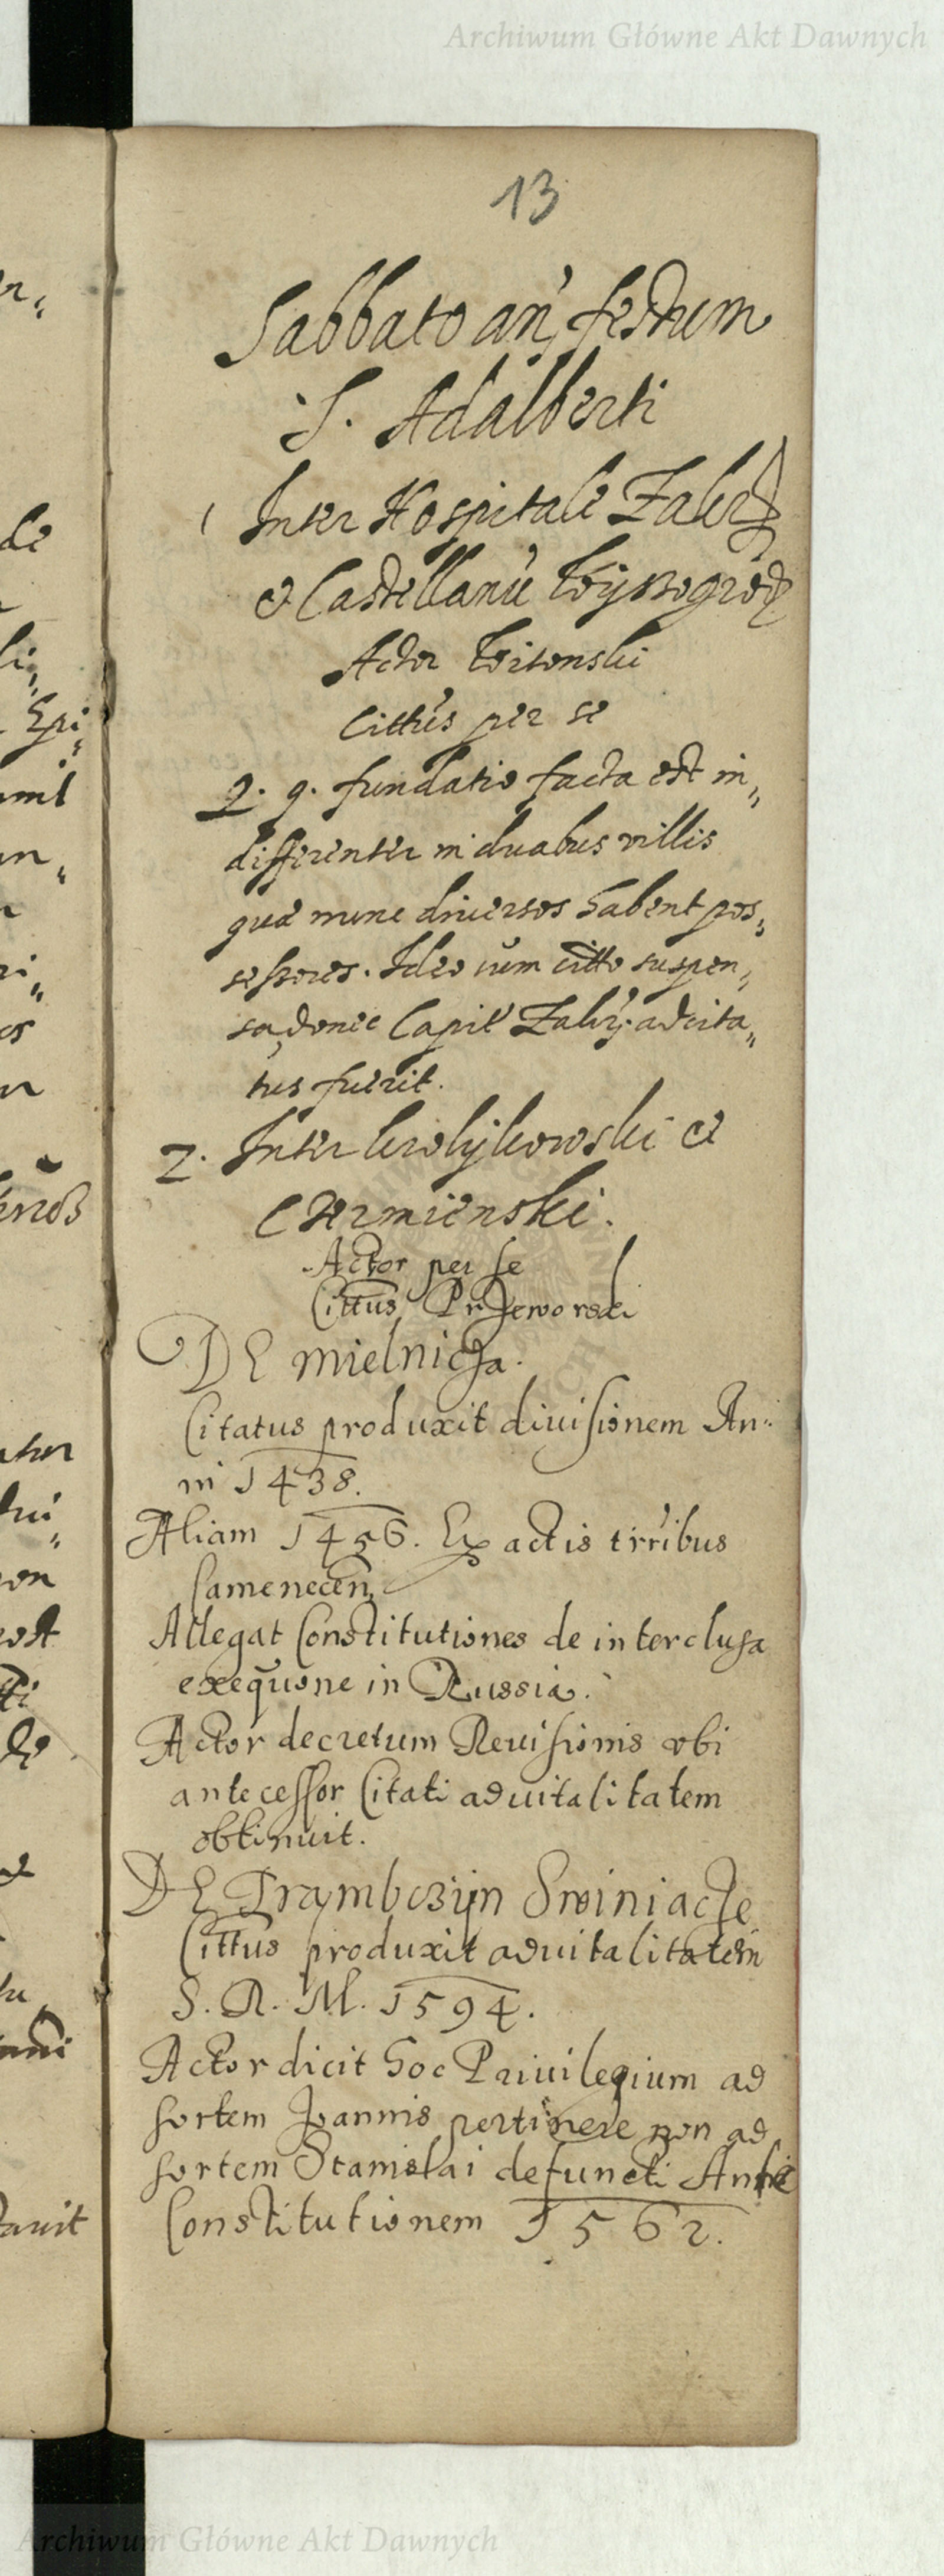 Archiwum Główne Akt Dawnych
13
Sabbato an̄ festum
S. Adalberti
1 Inter Hospitale Zakr
et Castellanū Wyssogrod
Actor Witonski
Cittus per se
Q. q. fundatio facta est in„
differenter in duabus villis
quæ nunc diversos habent pos„
sessores. Ideo cum citto suspen„
sa, donec Capit Zakr. adcita„
tus fuerit.
2. Inter Krolykowski et
Czermienski.
Actor per se
Cittus Przeworski
DE Mielnicza.
Citatus produxit diuisionem An„
ni 1438.
Aliam 1456. Ex actis trribus
Camenecen,
Allegat Constitutiones de interclusa
exequone in Russia.
Actor decretum Reuisionis vbi
antecessor Citati aduitalitatem
obtinuit.
DE Trąmbczyn Swiniacze
Cittus produxit aduitalitatem
S. R. M. 1594.
Actor dicit hoc Priuilegium ad
sortem Joannis pertinere non ad
sortem Stanislai defuncti
Constitutionem 1562.
er„
de
li„
Epi„
uml
un„
ri„
os
ator
ui„
von
ost
tti
tauit
Archiwum Główne Akt Dawnych